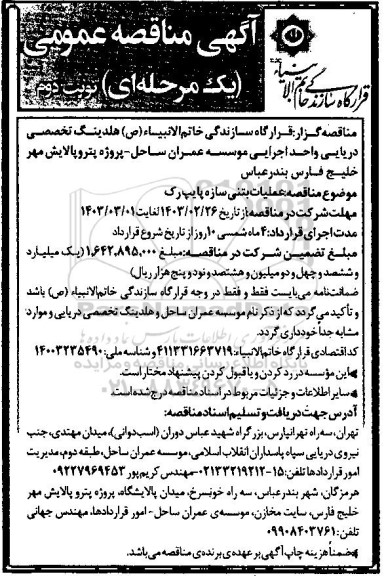 آگهی مناقصه عمومی
(یک مرحله‌ای) نوبت دوم
قرارگاه سازندگی خاتم الانبیاء
مناقصه گزار: قرارگاه سازندگی خاتم الانبیاء (ص) هلدینگ تخصصی
دریایی واحد اجرایی موسسه عمران ساحل- پروژه پتروپالایش مهر
خلیج فارس بندرعباس
موضوع مناقصه: عملیات بتنی سازه پایپ رک
مهلت شرکت در مناقصه: از تاریخ ۱۴۰۳/۰۲/۲۶ لغایت ۱۴۰۳/۰۳/۰۱
مدت اجرای قرارداد: ۴ ماه شمسی ۱۰ روز از تاریخ شروع قرارداد
مبلغ تضمین شرکت در مناقصه: مبلغ ۱,۶۴۲,۸۹۵,۰۰۰ (یک میلیارد
و ششصد و چهل و دو میلیون و هشتصد و نود و پنج هزار ریال)
ضمانتنامه می‌بایست فقط و فقط در وجه قرارگاه سازندگی خاتم‌الانبیاء (ص) باشد
و تأکید می گردد که از ذکر نام موسسه عمران ساحل و هلدینگ تخصصی دریایی و موارد
مشابه جداً خودداری گردد.
کد اقتصادی قرارگاه خاتم الانبیاء: ۴۱۱۳۳۱۶۶۳۷۱۹ و شناسه ملی: ۱۴۰۰۳۲۳۵۴۹۰
این مؤسسه در رد کردن و یا قبول کردن پیشنهاد مختار است.
سایر اطلاعات و جزئیات مربوط در اسناد مناقصه درج شده است.
آدرس جهت دریافت و تسلیم اسناد مناقصه:
تهران، سه راه تهرانپارس، بزرگراه شهید عباس دوران (اسب‌دوانی)، میدان مهتدی، جنب
نیروی دریایی سپاه پاسداران انقلاب اسلامی، موسسه عمران ساحل، طبقه دوم، مدیریت
امور قراردادها تلفن: ۱۵-۰۲۱۳۳۲۱۹۲۱۲- مهندس کریم پور ۰۹۲۲۷۹۶۹۴۵۳
هرمزگان، شهر بندرعباس، سه راه خونسرخ، میدان پالایشگاه، پروژه پترو پالایش مهر
خلیج فارس، سایت مخازن، موسسه‌ی عمران ساحل- امور قراردادها، مهندس جهانی
تلفن: ۰۹۹۰۸۴۰۳۷۶۱
ضمناً هزینه چاپ آگهی بر عهده‌ی برنده‌ی مناقصه می‌باشد.